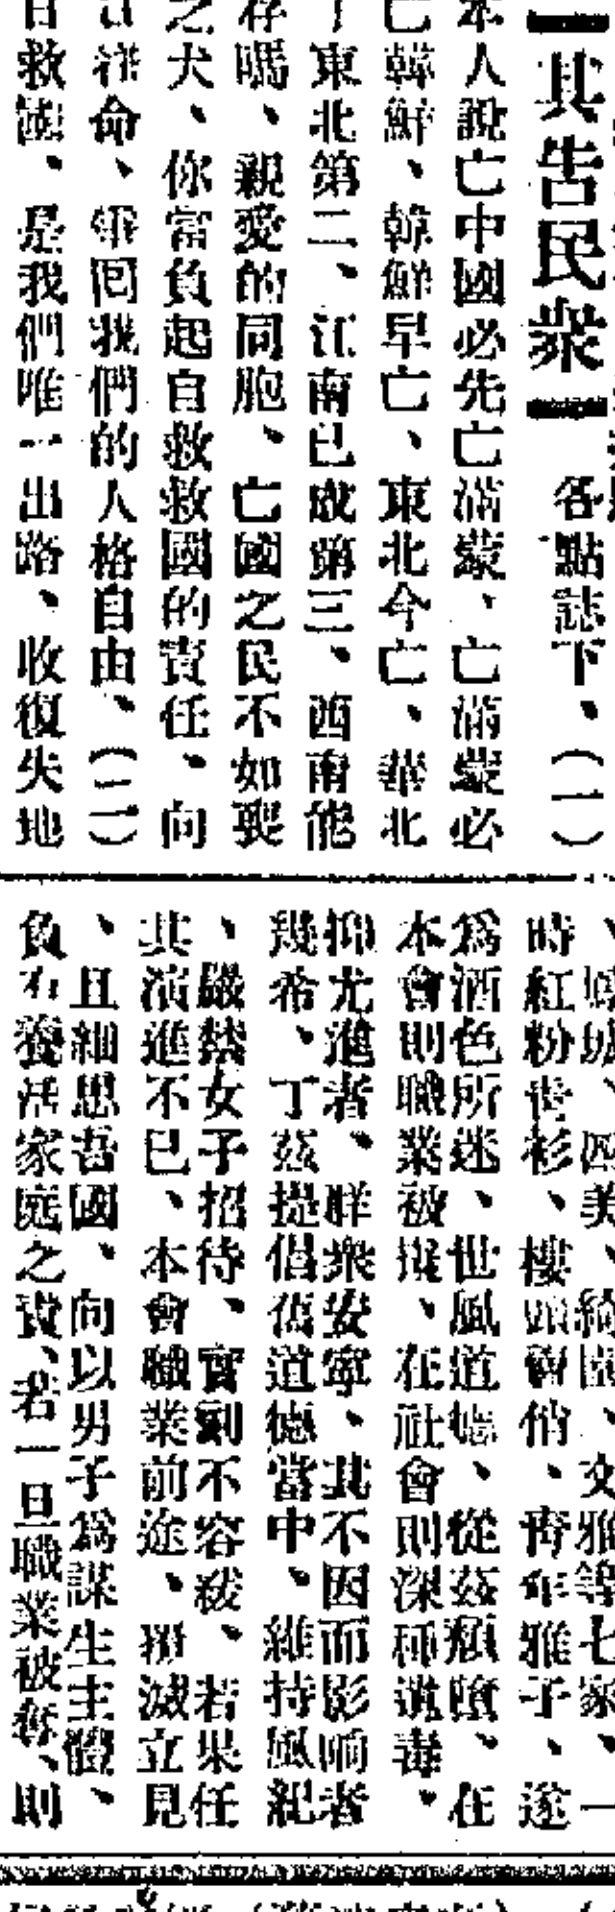 其告民衆
各點誌下、(一)
本人說亡中國必先亡滿蒙、亡滿蒙必
亡韓鮮、韓鮮早亡、東北今亡、華北
東北第二、江南已成第三、西南能
存嗎、親愛的同胞、亡國之民不如喪
之犬、你當負起自救救國的責任、向
命、爭囘我們的人格自由、(二)
自救國、是我們唯一出路、收復失地
、四美、綺園、文雅等七家、一
時紅粉青衫、樓頭賣俏、靑年雅子、遂
爲酒色所迷、世風道德、從茲頹墮、在
本會則職業被攘、在社會則深種遺毒、
抑尤進者、群衆安寧、其不因而影响者
幾希、丁茲提倡舊道德當中、維持風紀
、嚴禁女子招待、實刻不容緩、若果任
其演進不已、本會職業前途、毀滅立見
、且細思吾國、向以男子爲謀生主體、
負有養活家庭之責、若一旦職業被奪、則